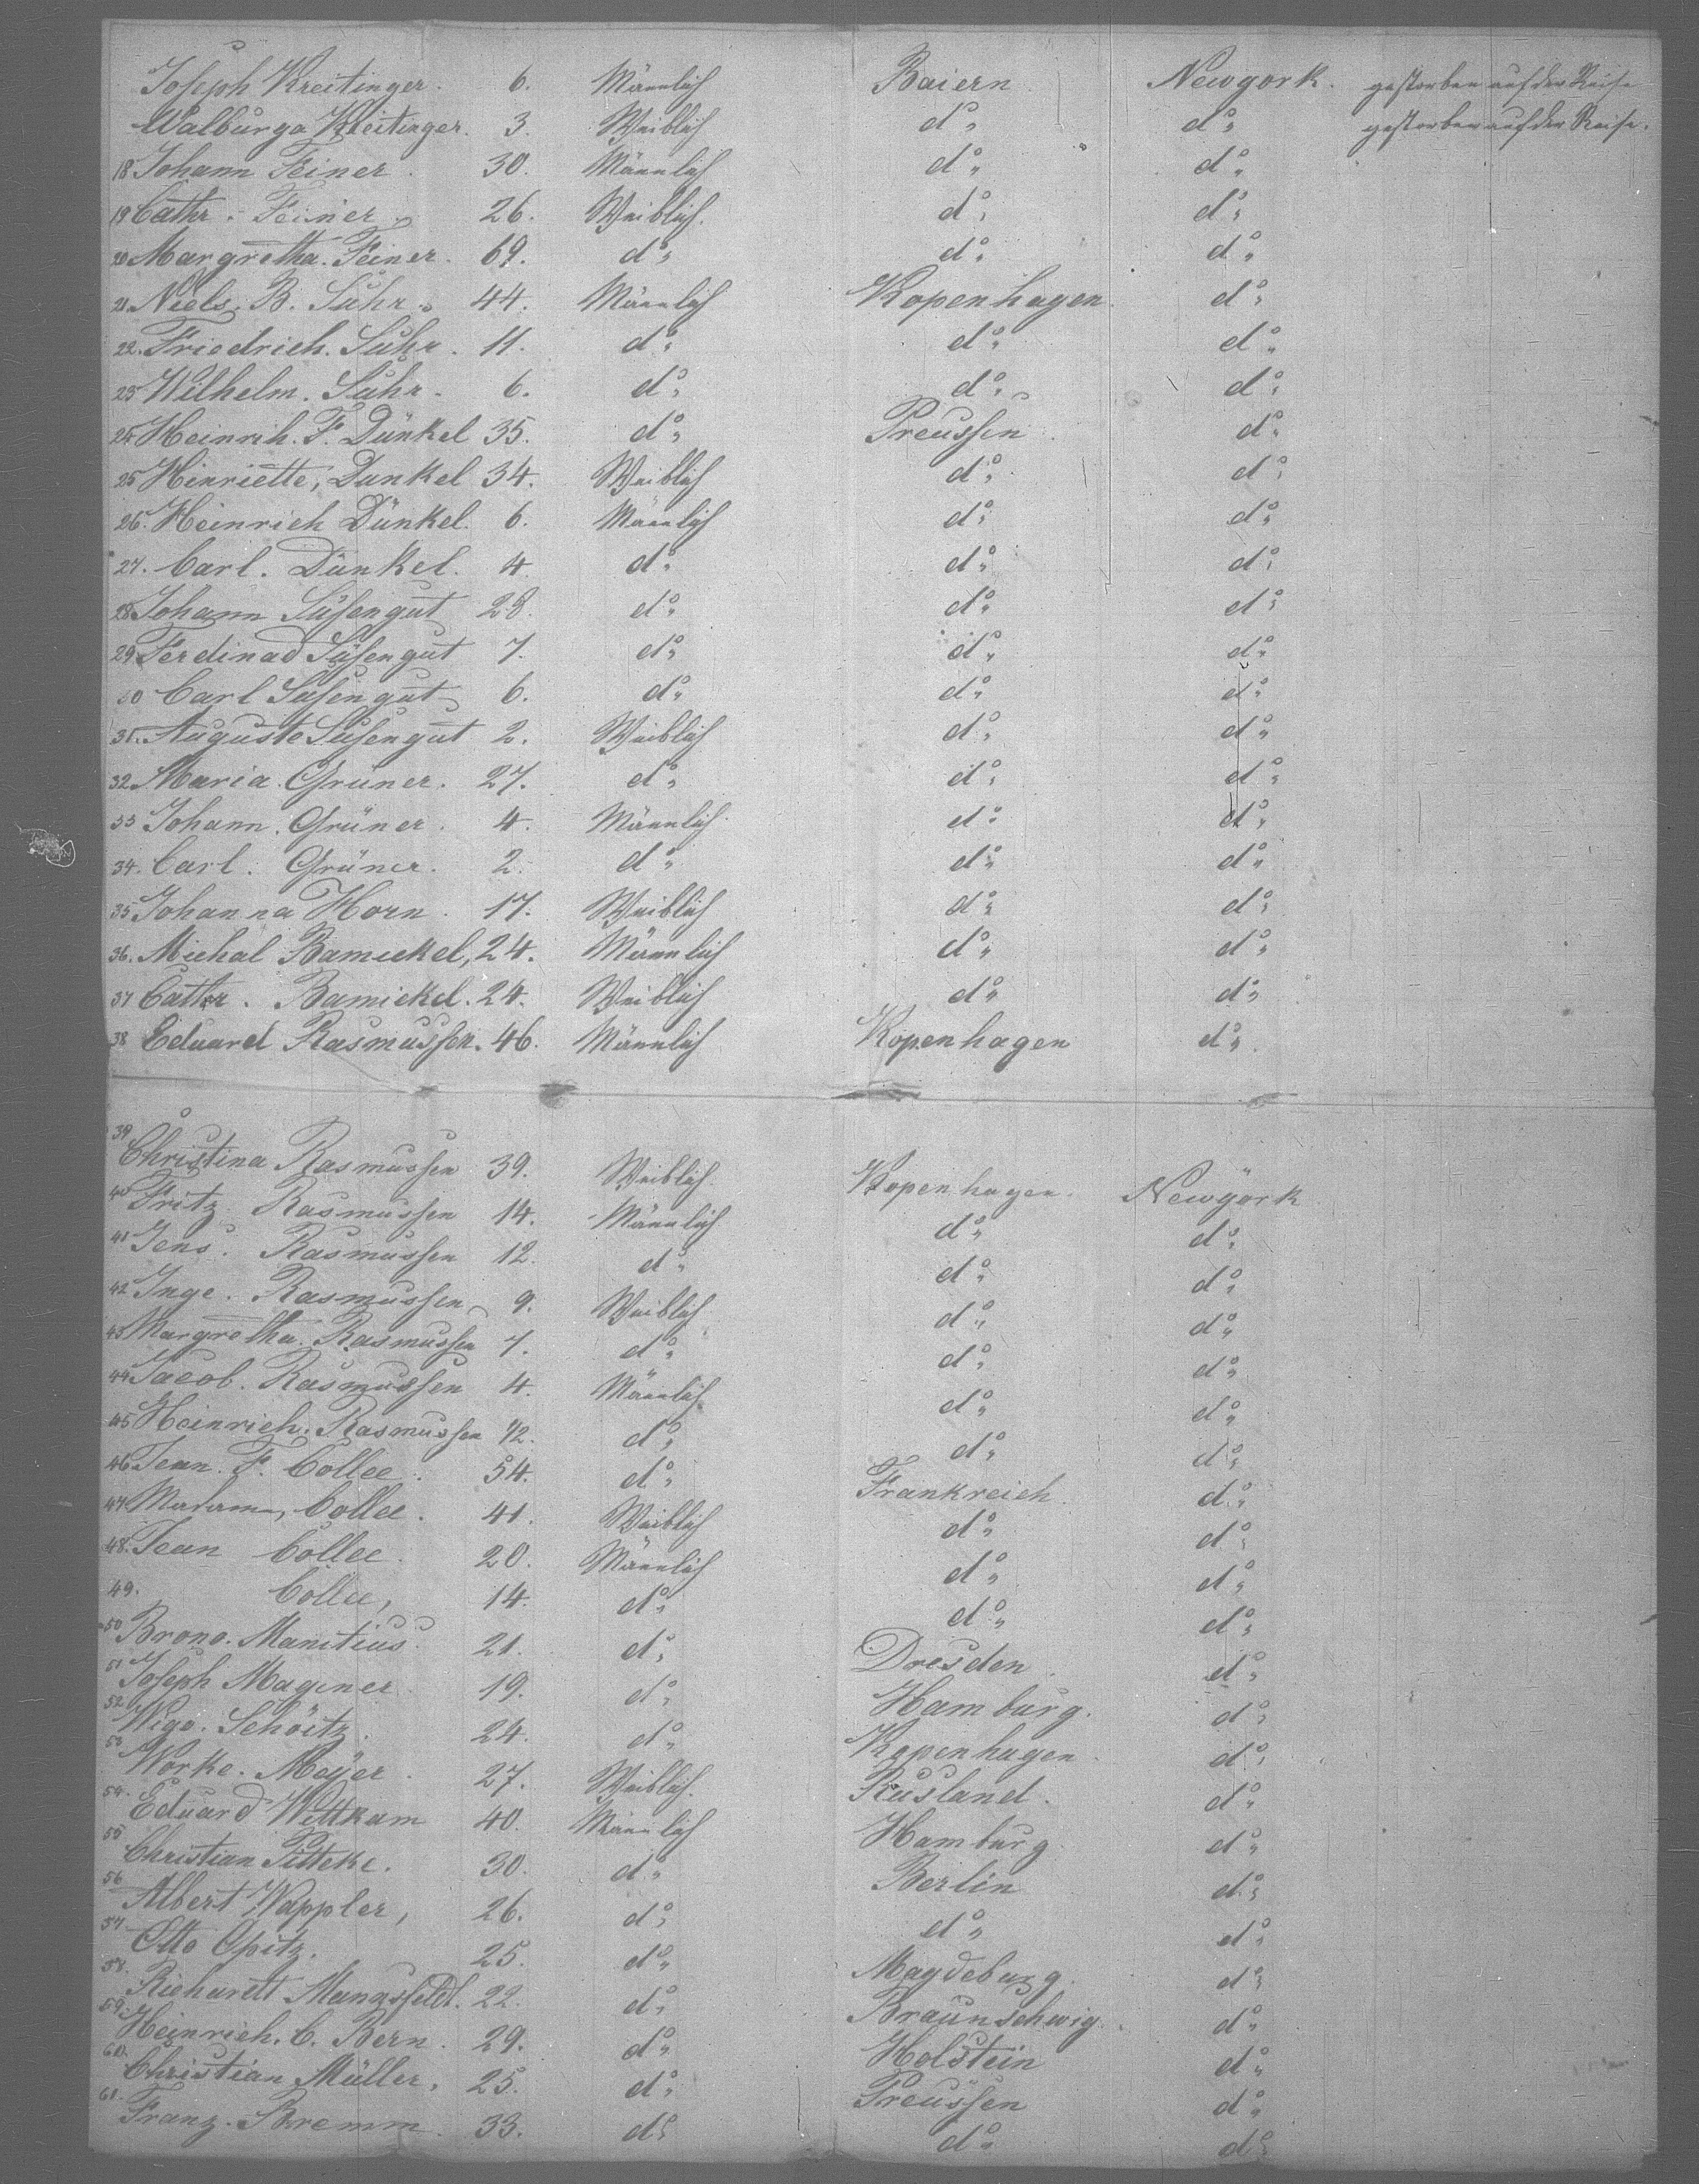 Joseph Kreitinger. 6. Männlich Baiern Newyork. gestorben auf der Reise
Walburga Kreitinger. 3. Weiblich do do gestorben auf der Reise.
18 Johann Feiner. 30. Männlich do do
19 Cathr. Feiner. 26. Weiblich. do do
20 Margretha. Feiner. 69. do do do
21 Niels. B. Suhr. 44. Männlich Kopenhagen. do
22. Friedrich. Suhr. 11. do do do
23 Wilhelm. Suhr. 6. do do do
24 Heinrih. F. Dünkel 35. do Preussen. do
25 Hinriette, Dunkel 34. Weiblich do do
26. Heinrich Dünkel. 6. Männlich do do
27. Carl. Dünkel. 4. do do do
28 Johann Süsengut 28. do do do
29 Ferdinad Süsengut 7. do do do
30 Carl Susengut 6. do do do
31. Auguste Susengut 2. Weiblich do do
32. Maria. Grüner. 27. do do do
33 Johann. Grüner. 4. Männlich do do
34. Carl. Grüner. 2. do do do
35 Johanna Horn. 17. Weiblich do do
36. Michal Bamickel, 24. Männlich do do
37 Cathr. Bamickel. 24. Weiblich do do
38 Eduard Rasmussen. 46. Männlich Kopenhagen do
39 Christina Rasmussen 39. Weiblich. Kopenhagen. Newyork
40 Fritz. Rasmussen 14. Männlich do do
41 Jens. Rasmussen 12. do do do
42 Inge. Rasmussen 9. Weiblich do do
43 Margretha. Rasmussen 7. do do do
44 Jacob. Rasmussen 4. Männlich do do
45 Heinrich. Rasmussen 1/2. do do do
46. Jean. F. Collee. 54. do Frankreich. do
47. Madame, Collee. 41. Weiblich do do
48. Jean Collee. 20. Männlich do do
49. Collee, 14. do do do
50 Brono. Manitius. 21. do Dresden. do
51 Joseph Maginer. 19. do Hamburg. do
52 Wigo. Schöitz. 24. do Kopenhagen. do
53 Worke. Mejer. 27. Weiblich. Rusland. do
54. Eduard Wittkam 40. Männlich Hamburg. do
55 Christian Pitteke. 30. do Berlin do
56 Albert Wappler, 26. do do do
57 Otto Opitz. 25. do Magdeburg. do
58. Richardt Mannsfeldt. 22. do Braunschwig. do
59. Heinrich. C. Bern. 29. do Holstein do
60. Christian Müller, 25. do Preussen do
61. Franz. Bremm. 33. do do do